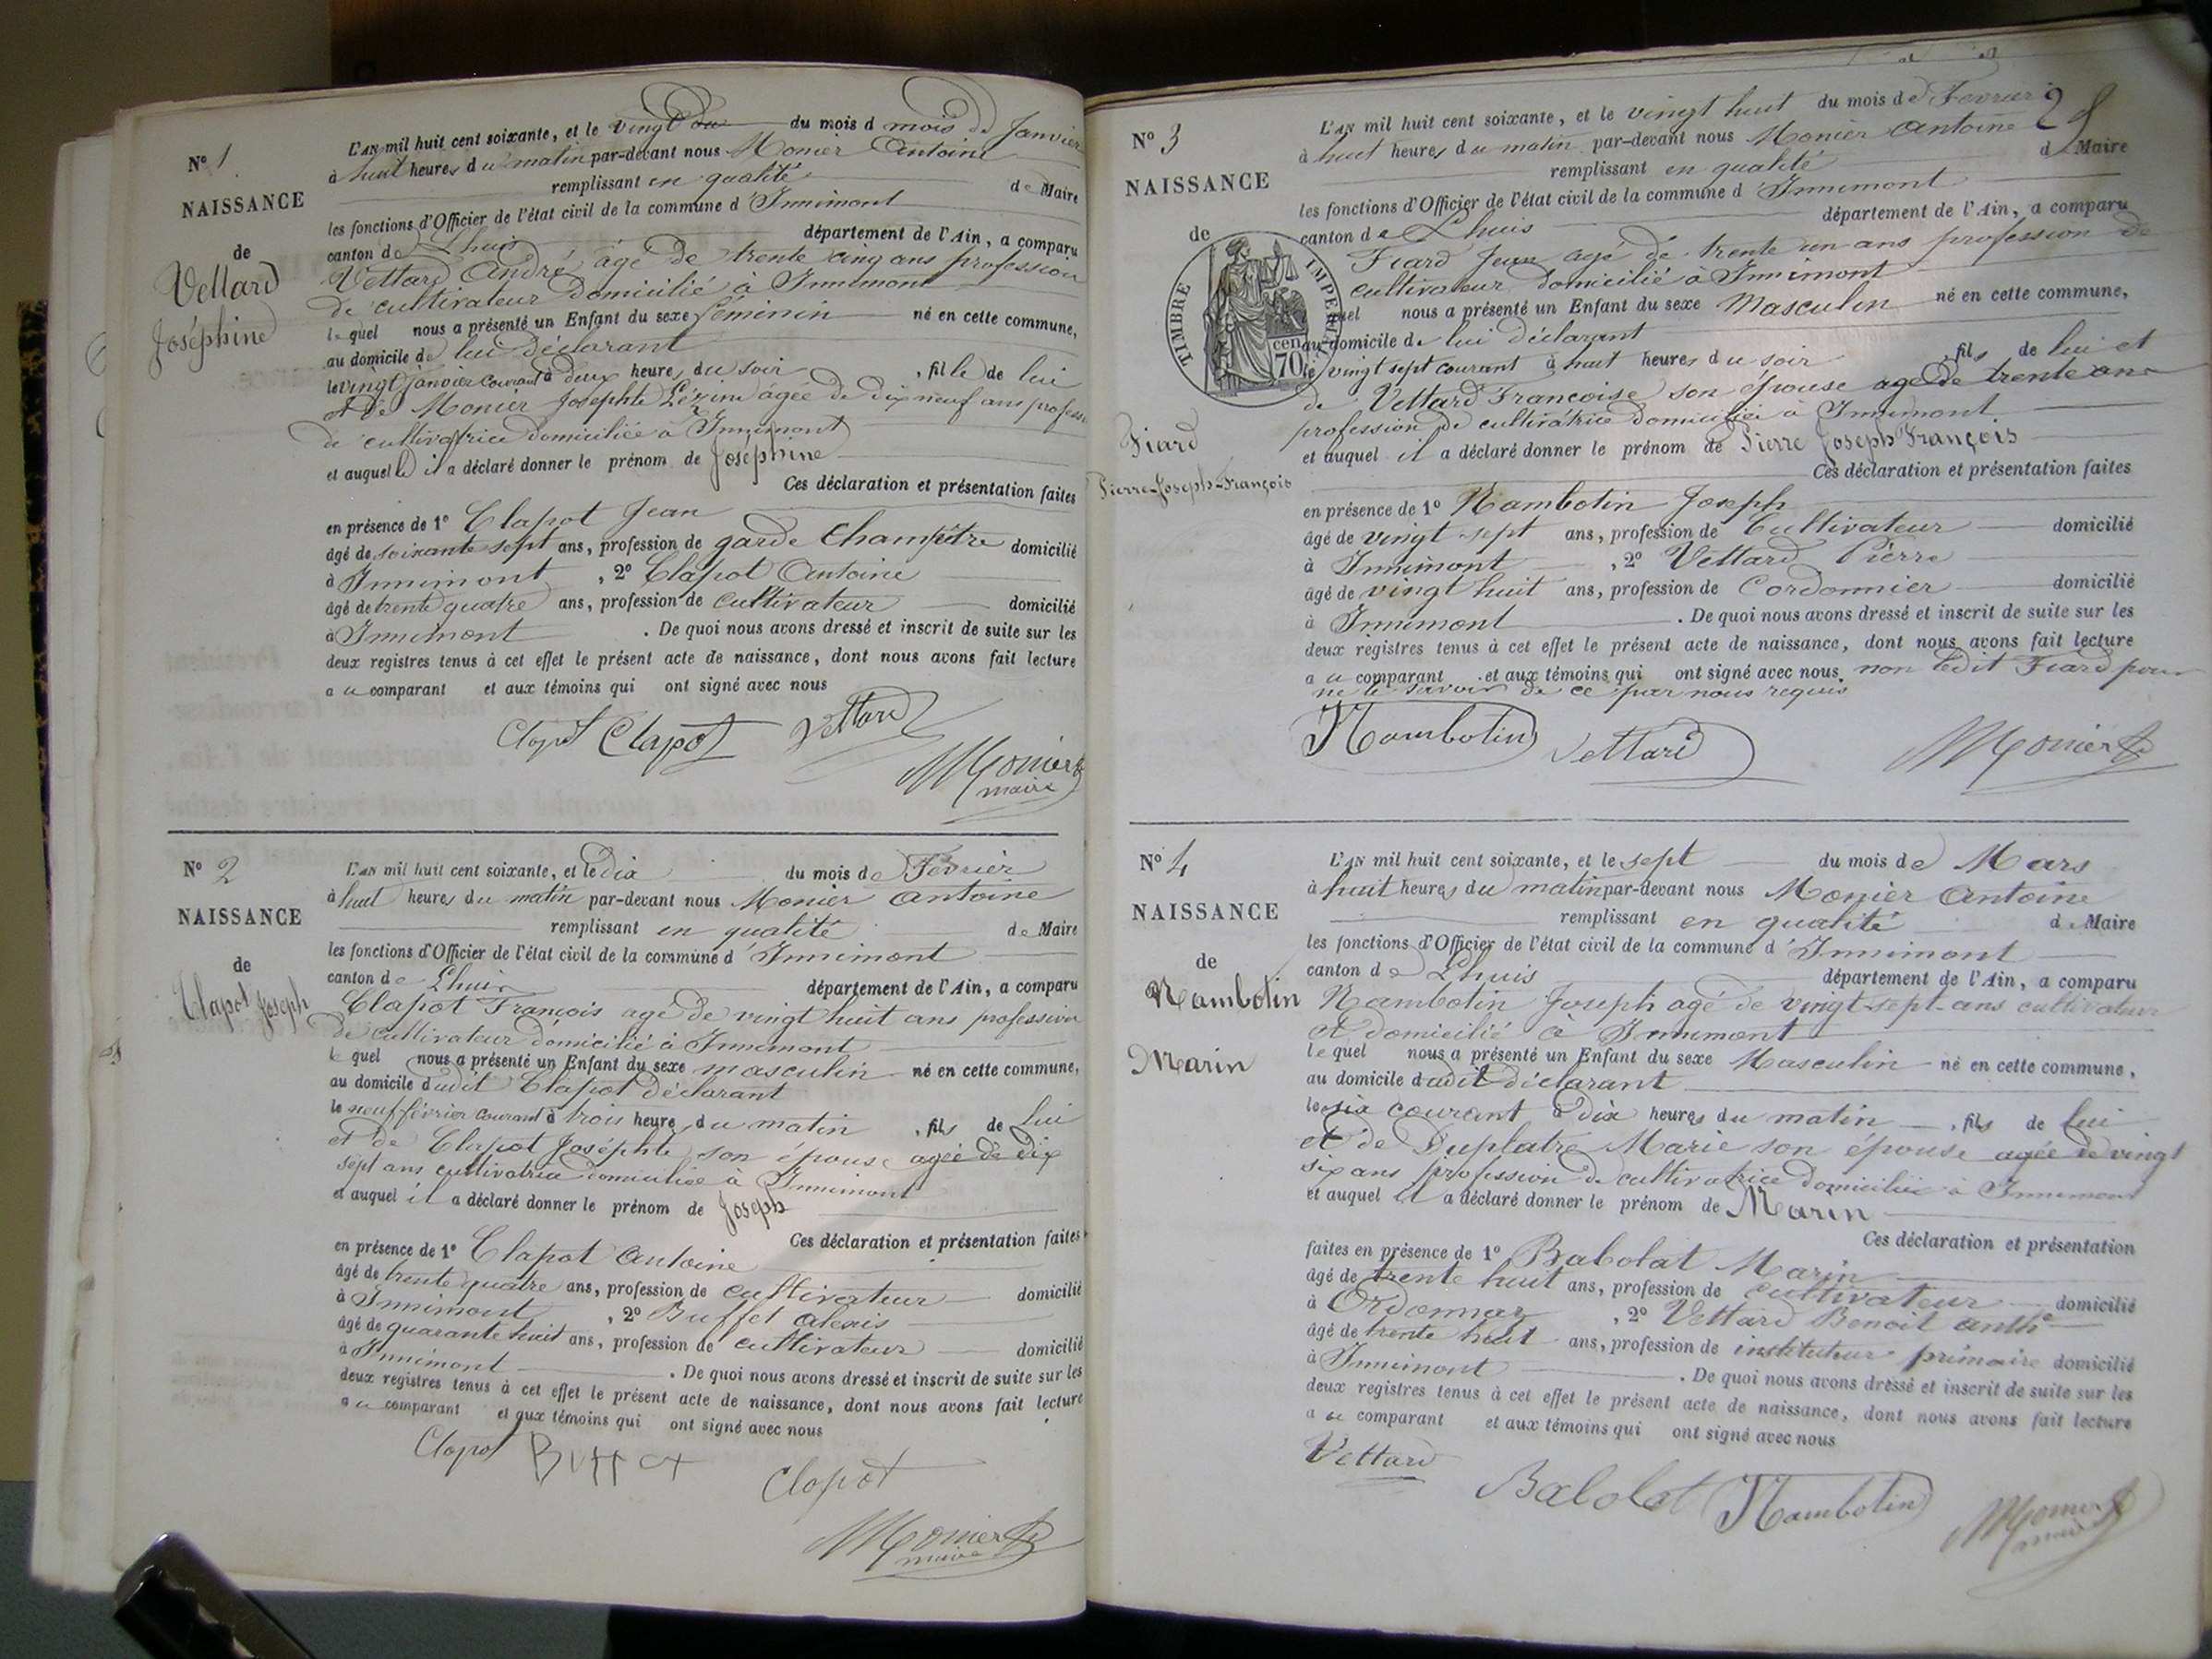 Nº 1
NAISSANCE
de
Vettard
Joséphine
L'AN mil huit cent soixante, et le vingt du mois d mois de Janvier
à huit heures du matin par-devant nous Monier Antoine
remplissant en qualité de Maire
les fonctions d'Officier de l'état civil de la commune d'Innimont
canton de Lhuis département de l'Ain, a comparu
Vettard André, âgé de trente cinq ans profession
de cultivateur domicilié à Innimont
lequel nous a présenté un Enfant du sexe féminin né en cette commune,
au domicile de lui déclarant
le vingt janvier courant à deux heures du soir, fille de lui
et de Monier Josephte Lézine âgée de dix neuf ans profess
de cultivatrice domiciliée à Innimont
et auquel il a déclaré donner le prénom de Joséphine
Ces déclaration et présentation faites
en présence de 1º Clapot Jean
âgé de soixante sept ans, profession de garde Champêtre domicilié
à Innimont, 2º Clapot Antoine
âgé de trente quatre ans, profession de cultivateur domicilié
à Innimont. De quoi nous avons dressé et inscrit de suite sur les
deux registres tenus à cet effet le présent acte de naissance, dont nous avons fait lecture
au comparant et aux témoins qui ont signé avec nous
Clapot Clapot Vettard
Monier
maire
Nº 2
NAISSANCE
de
Clapot Joseph
L'AN mil huit cent soixante, et le dix du mois de Février
à huit heures du matin par-devant nous Monier Antoine
remplissant en qualité de Maire
les fonctions d'Officier de l'état civil de la commune d'Innimont
canton de Lhuis département de l'Ain, a comparu
Clapot François agé de vingt huit ans profession
de cultivateur domicilié à Innimont
lequel nous a présenté un Enfant du sexe masculin né en cette commune,
au domicile dudit Clapot déclarant
le neuf février courant à trois heures du matin, fils de lui
et de Clapot Joséphte son épouse agée de dix
sept ans cultivatrice domiciliée à Innimont
et auquel il a déclaré donner le prénom de Joseph
Ces déclaration et présentation faites
en présence de 1º Clapot Antoine
âgé de trente quatre ans, profession de cultivateur domicilié
à Innimont, 2º Buffet Alexis
âgé de quarante huit ans, profession de cultivateur domicilié
à Innimont. De quoi nous avons dressé et inscrit de suite sur les
deux registres tenus à cet effet le présent acte de naissance, dont nous avons fait lecture
au comparant et aux témoins qui ont signé avec nous
Clapot Buffet Clapot
Monier
maire
Nº 3
NAISSANCE
de
TIMBRE IMPERIAL
70 cen
Fiard
Pierre-Joseph-François
L'AN mil huit cent soixante, et le vingt huit du mois de Février
à huit heures du matin par-devant nous Monier Antoine
remplissant en qualité de Maire
les fonctions d'Officier de l'état civil de la commune d'Innimont
canton de Lhuis département de l'Ain, a comparu
Fiard Jean agé de trente un ans profession de
cultivateur domicilié à Innimont
quel nous a présenté un Enfant du sexe Masculin né en cette commune,
au domicile de lui déclarant
le vingt sept courant à huit heures du soir, fils de lui et
de Vettard Françoise son épouse agée de trente ans
profession de cultivatrice domiciliée à Innimont
et auquel il a déclaré donner le prénom de Pierre Joseph François
Ces déclaration et présentation faites
en présence de 1º Nambotin Joseph
âgé de vingt sept ans, profession de Cultivateur domicilié
à Innimont, 2º Vettard Pierre
âgé de vingt huit ans, profession de Cordonnier domicilié
à Innimont. De quoi nous avons dressé et inscrit de suite sur les
deux registres tenus à cet effet le présent acte de naissance, dont nous avons fait lecture
au comparant et aux témoins qui ont signé avec nous, non ledit Fiard pour
ne le savoir de ce par nous requis
Nambotin Vettard Monier
Nº 4
NAISSANCE
de
Nambotin
Marin
L'AN mil huit cent soixante, et le sept du mois de Mars
à huit heures du matin par-devant nous Monier Antoine
remplissant en qualité de Maire
les fonctions d'Officier de l'état civil de la commune d'Innimont
canton de Lhuis département de l'Ain, a comparu
Nambotin Joseph agé de vingt-sept-ans cultivateur
et domicilié à Innimont
lequel nous a présenté un Enfant du sexe Masculin né en cette commune,
au domicile dudit déclarant
le six courant à dix heures du matin, fils de lui
et de Duplatre Marie son épouse agée de vingt
six ans profession de cultivatrice domiciliée à Innimont
et auquel il a déclaré donner le prénom de Marin
Ces déclaration et présentation
faites en présence de 1º Babolat Marin
âgé de trente huit ans, profession de cultivateur domicilié
à Ordonnaz, 2º Vettard Benoit Anth
âgé de trente huit ans, profession de instituteur primaire domicilié
à Innimont. De quoi nous avons dressé et inscrit de suite sur les
deux registres tenus à cet effet le présent acte de naissance, dont nous avons fait lecture
au comparant et aux témoins qui ont signé avec nous
Vettard
Babolat Nambotin Monier
maire